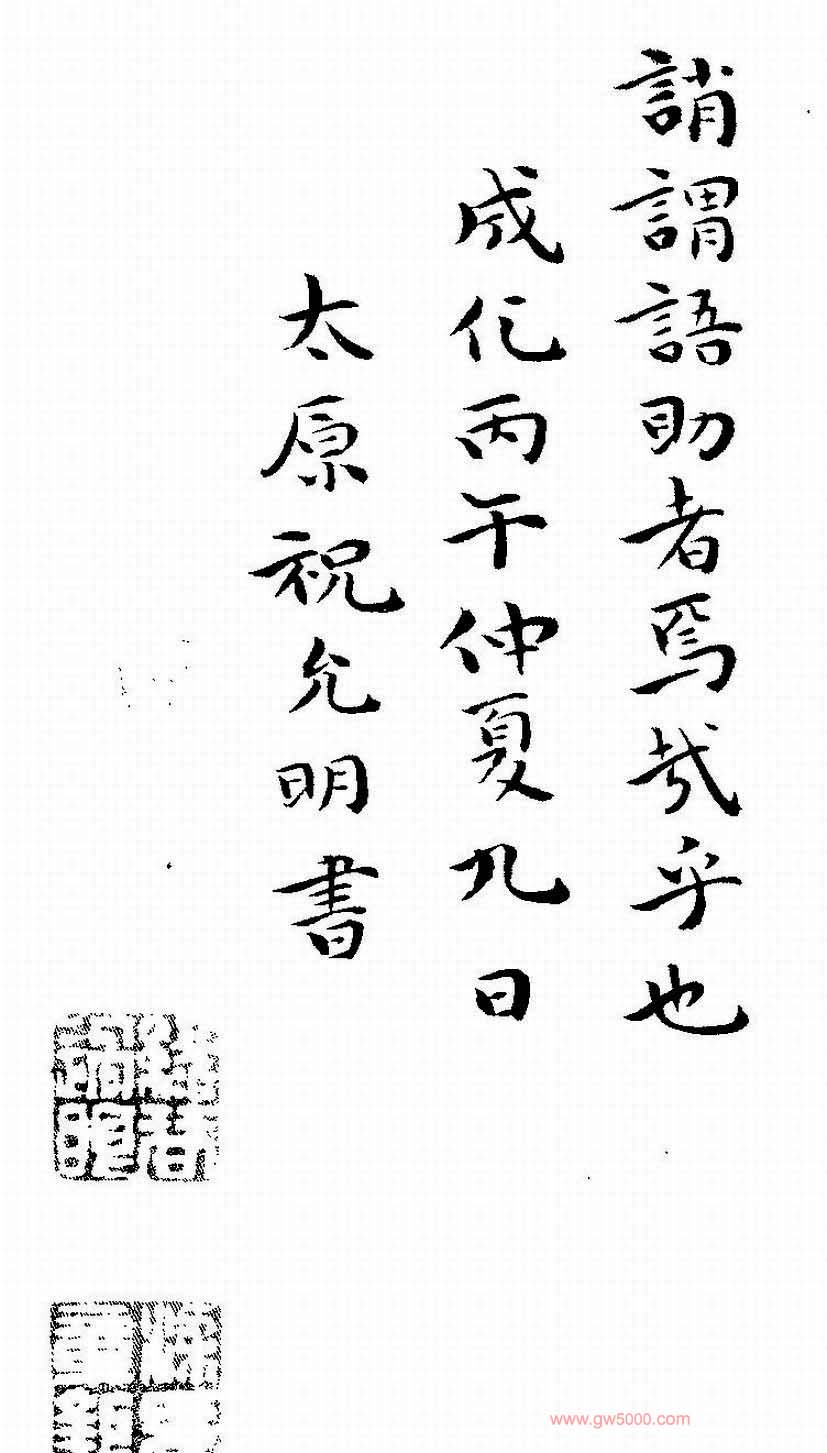 誚謂語助者焉哉乎也
成化丙午仲夏九日
太原祝允明書
www.gw5000.com